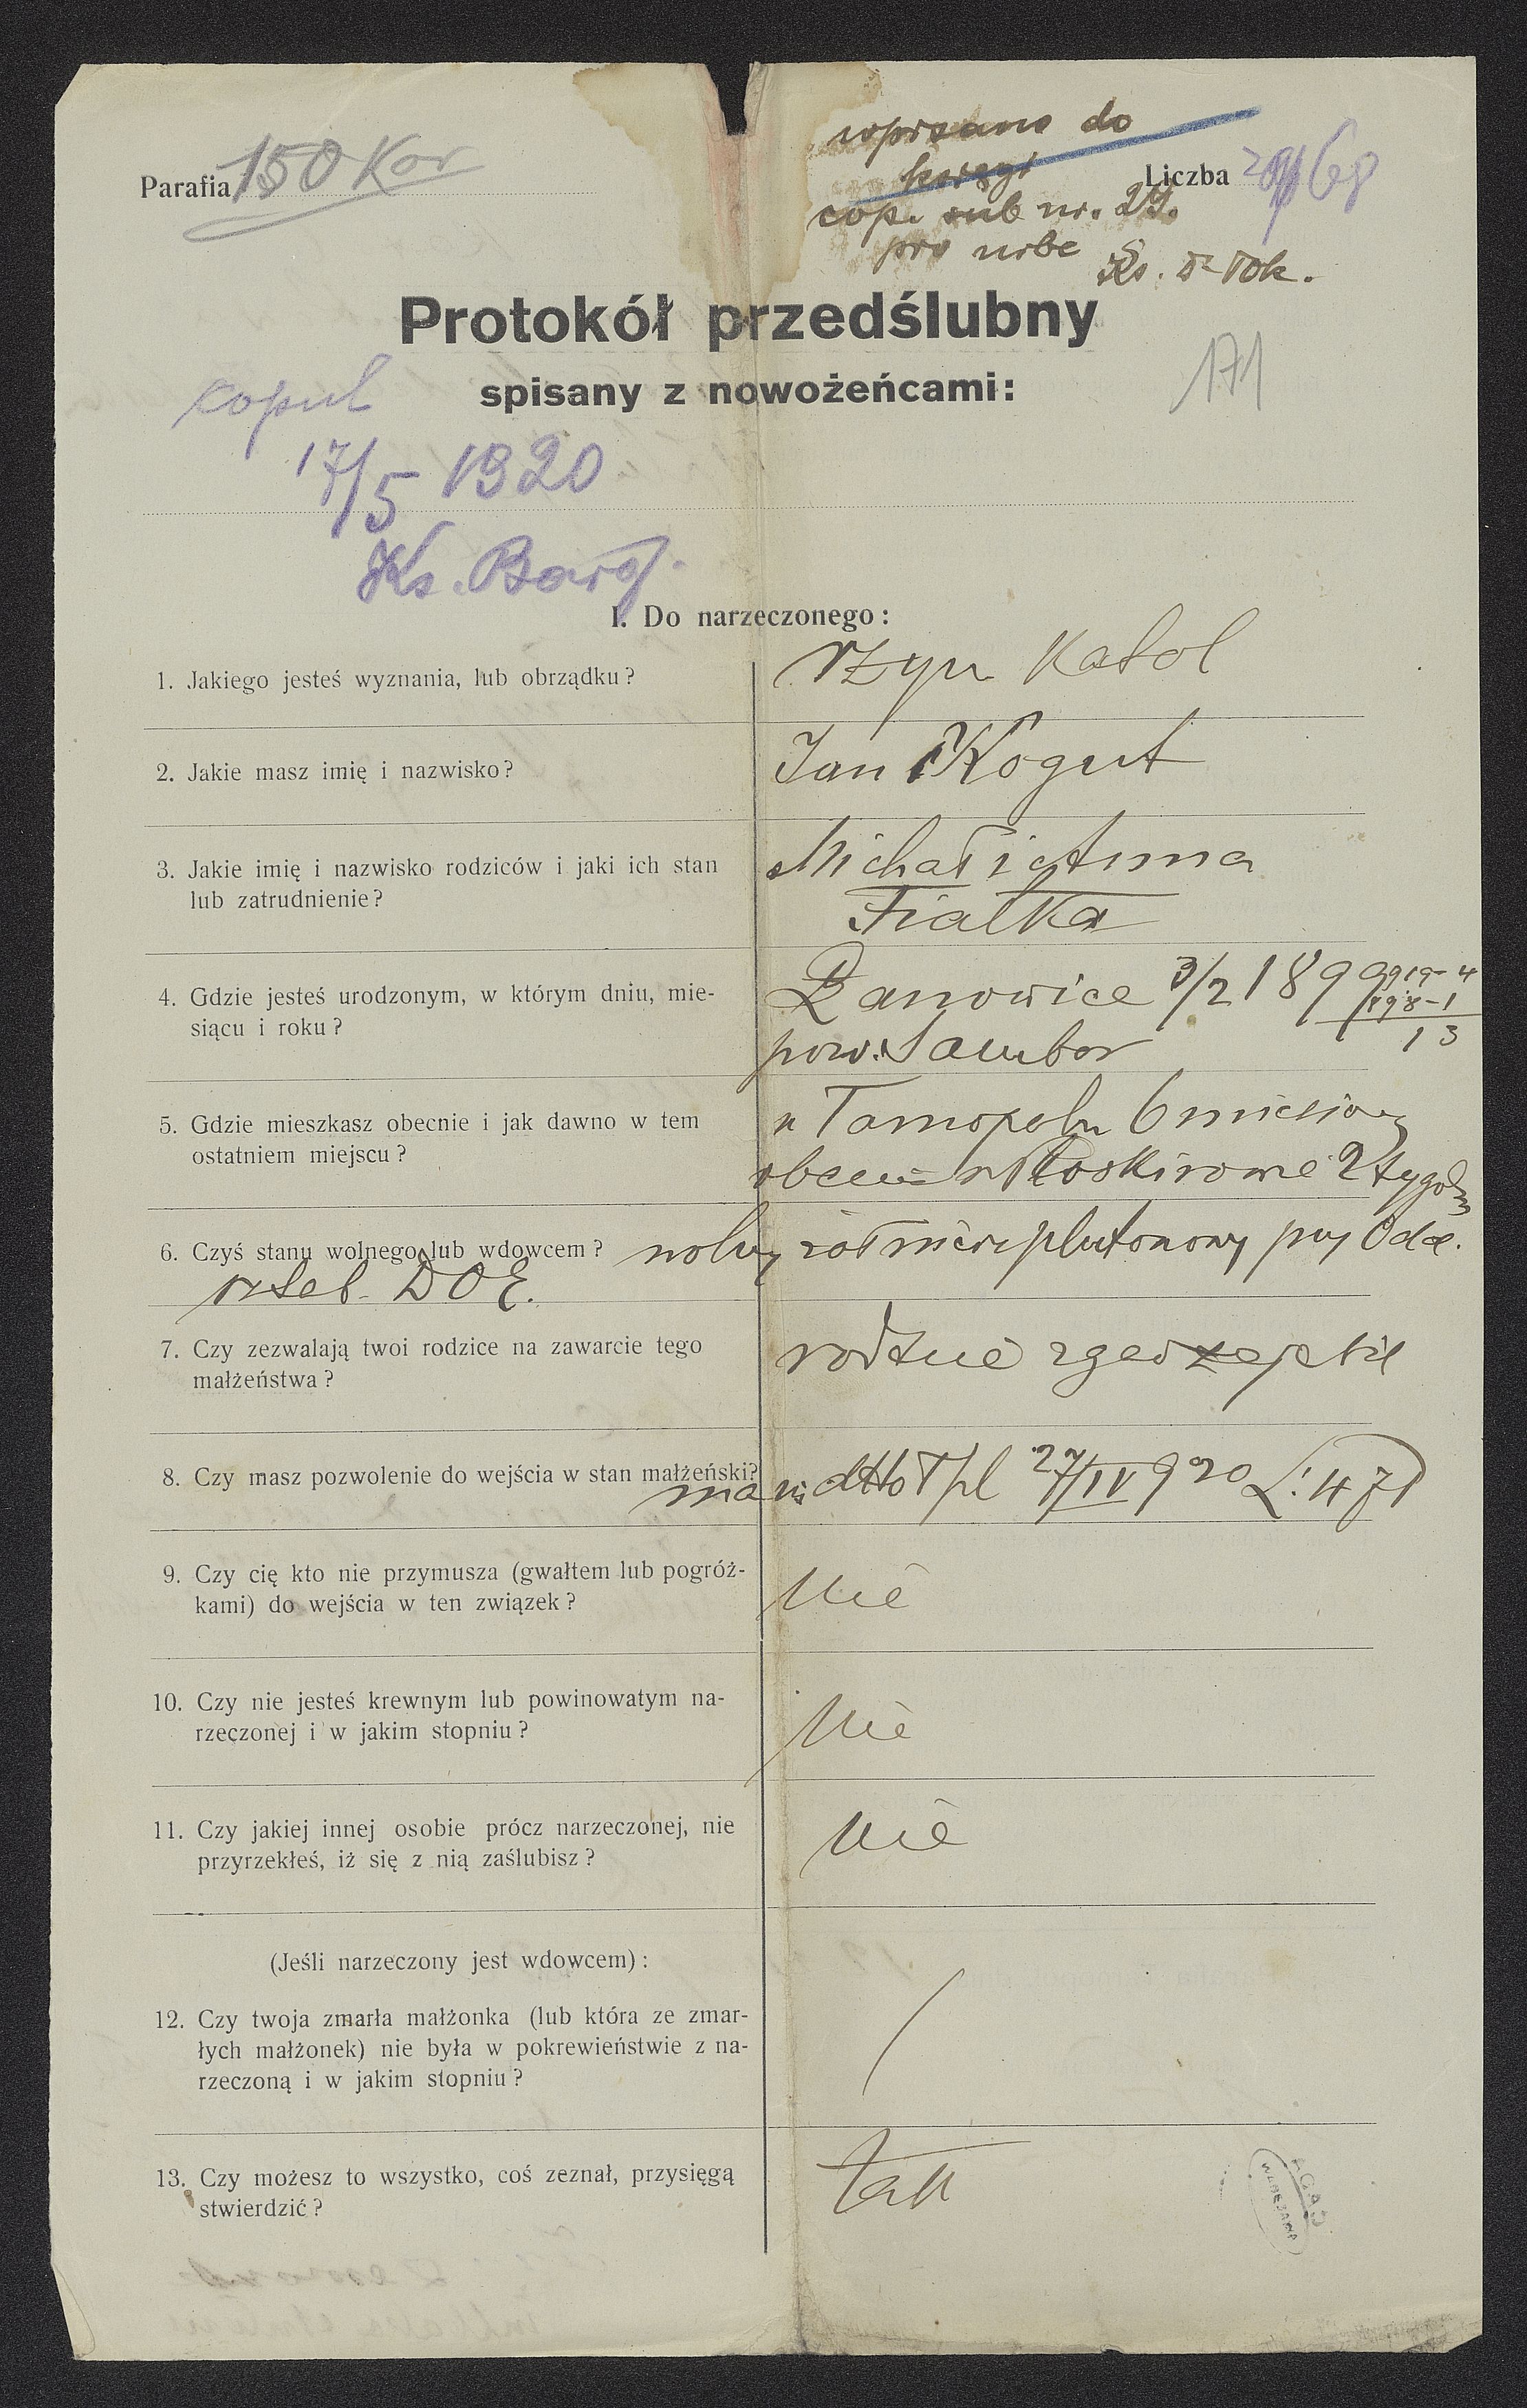 wpisano do
księgi
cop. sub nr. 29.
pro urbe
Parafia 150 Kor
Liczba 68
Protokół przedślubny
spisany z nowożeńcami:
171
copul
17/5 1920
Ks. 
I. Do narzeczonego:
1. Jakiego jesteś wyznania, lub obrządku?
rzym Katol
2. Jakie masz imię i nazwisko?
Jan Kogut
3. Jakie imię i nazwisko rodziców i jaki ich stan
lub zatrudnienie?
Michał i Anna
Fiałka
4. Gdzie jesteś urodzonym, w którym dniu, mie-
siącu i roku?
3/2 1899
pow. Sambor
5. Gdzie mieszkasz obecnie i jak dawno w tem
ostatniem miejscu?
w Tarnopolu 6 miesięcy
obecnie w Płoskirowie 2 tygodn
6. Czyś stanu wolnego lub wdowcem? wolny żołnierz plutonowy przy Odd.
sztab. DOE.
7. Czy zezwalają twoi rodzice na zawarcie tego
małżeństwa?
8. Czy masz pozwolenie do wejścia w stan małżeński?
mam dtto Tpl 27/IV 920 L: 471
9. Czy cię kto nie przymusza (gwałtem lub pogróż-
kami) do wejścia w ten związek?
Nie
10. Czy nie jesteś krewnym lub powinowatym na-
rzeczonej i w jakim stopniu?
Nie
11. Czy jakiej innej osobie prócz narzeczonej, nie
przyrzekłeś, iż się z nią zaślubisz?
Nie
(Jeśli narzeczony jest wdowcem):
12. Czy twoja zmarła małżonka (lub która ze zmar-
łych małżonek) nie była w pokrewieństwie z na-
rzeczoną i w jakim stopniu?
/
13. Czy możesz to wszystko, coś zeznał, przysięgą
stwierdzić?
tak
AGAD
WARSZAWA